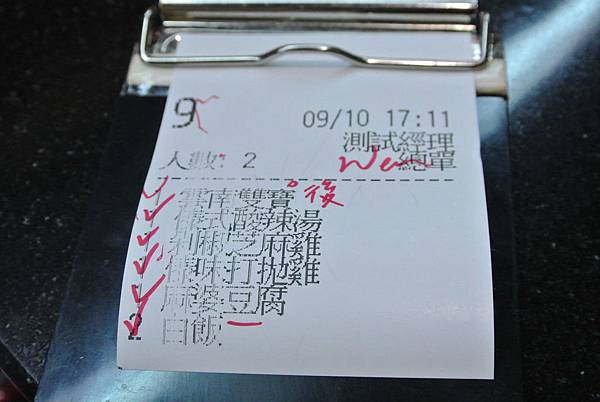 9 09/10 17:11
測試經理
人數: 2 總單
雲南雙寶 後
傣式酸辣湯
剁椒芝麻雞
傣味打拋雞
麻婆豆腐
2 白飯